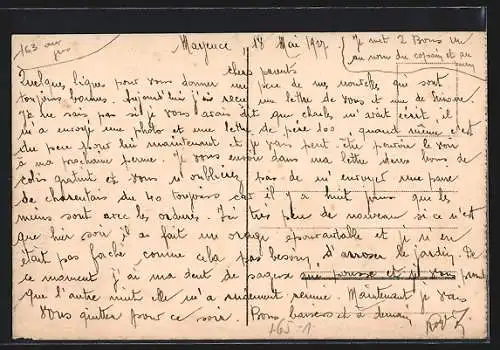 163 aux
Mayence 18 Mai 1927
Je met 2 Bons un
au nom du copain et au
chers parents
Quelques lignes pour vous donner un peu de mes nouvelles qui sont
toujours bonnes. Aujourd'hui j'ai reçu une lettre de vous et une de
Je ne sais pas si je vous avais dit que charles m'avait écrit, il
m'a envoyé une photo et une lettre de quand même c'est
du lui maintenant et je vais peut-être pouvoir le voir
à ma prochaine perme. Je vous envoie dans ma lettre deux bons de
colis gratuit et vous n'oublierez pas de m'envoyer une paire
de charentais du 40 toujours car il y a huit jours que les
miens sont avec les ordures. J'ai très peu de nouveau si ce n'est
que hier soir il a fait un orage épouvantable et je n'en
était pas faché comme cela pas besoin d'arroser le jardin. De
ce moment j'ai ma dent de sagesse qui pousse et je vous
que l'autre nuit elle m'a rudement. Maintenant je vais
vous quitter pour ce soir. Bons baisers et à demain
465-1